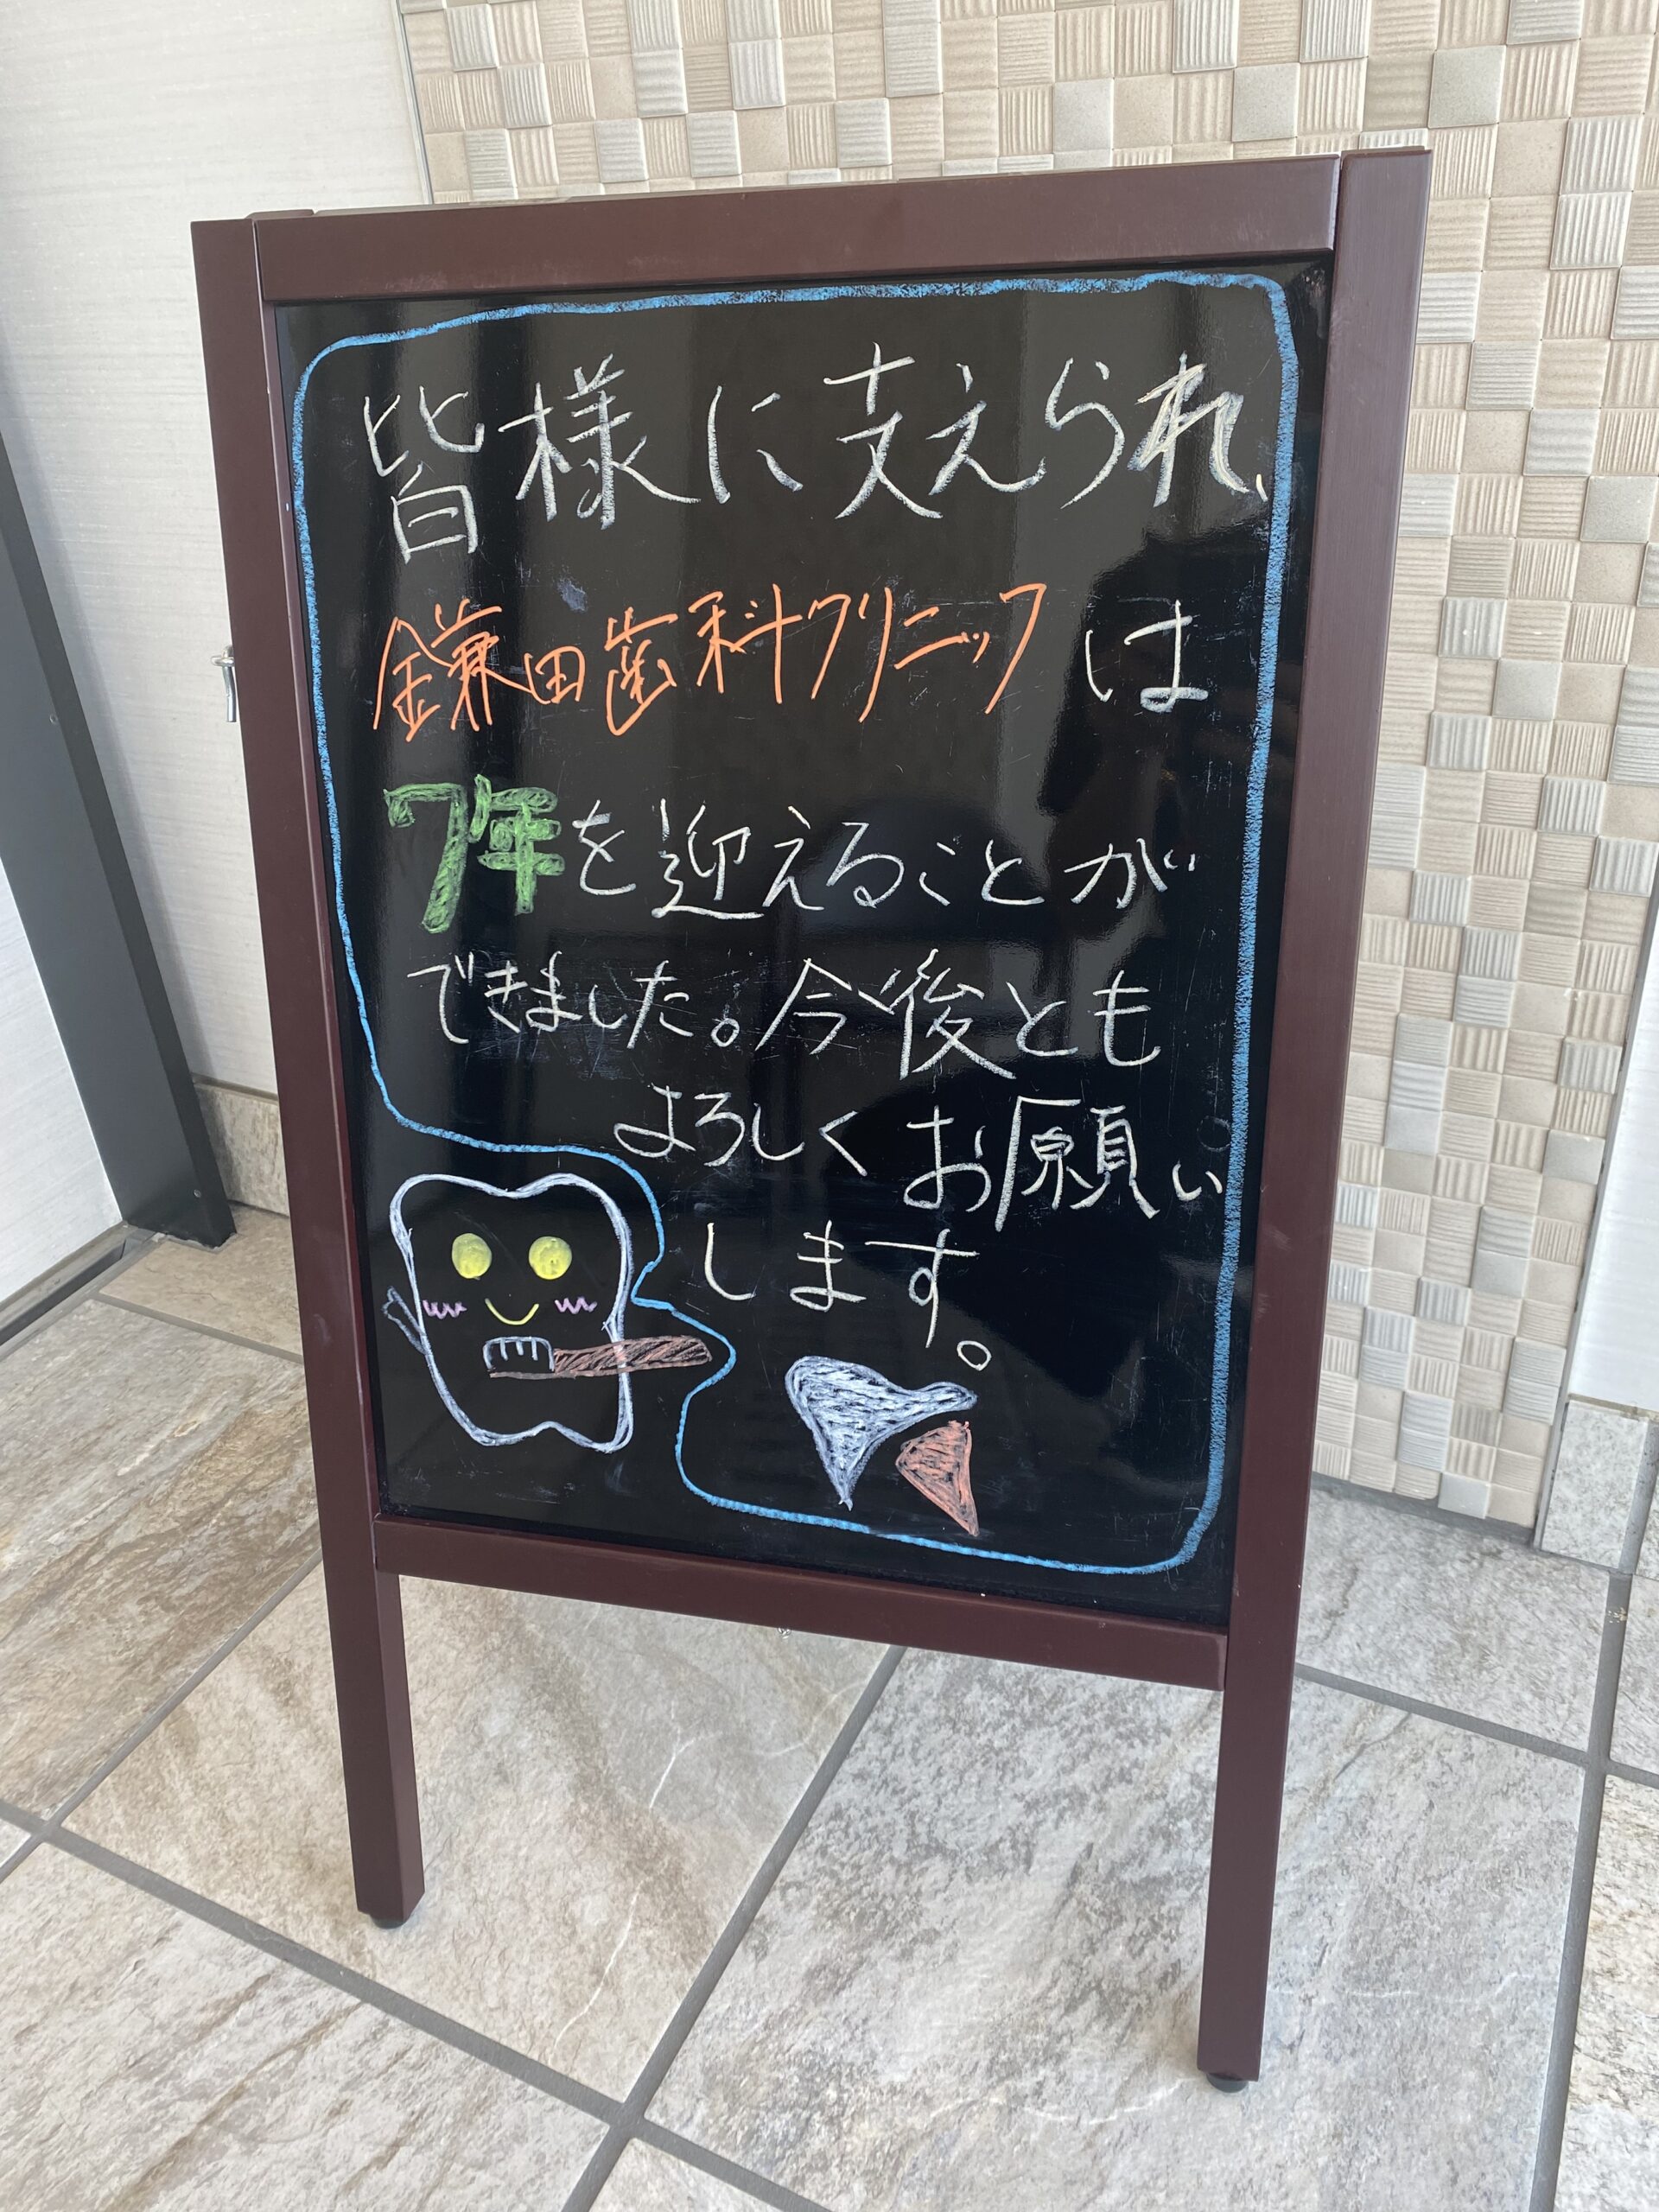 皆様に支えられ、
鎌田歯科クリニックは
7年を迎えることが
できました。今後とも
よろしくお願い
します。